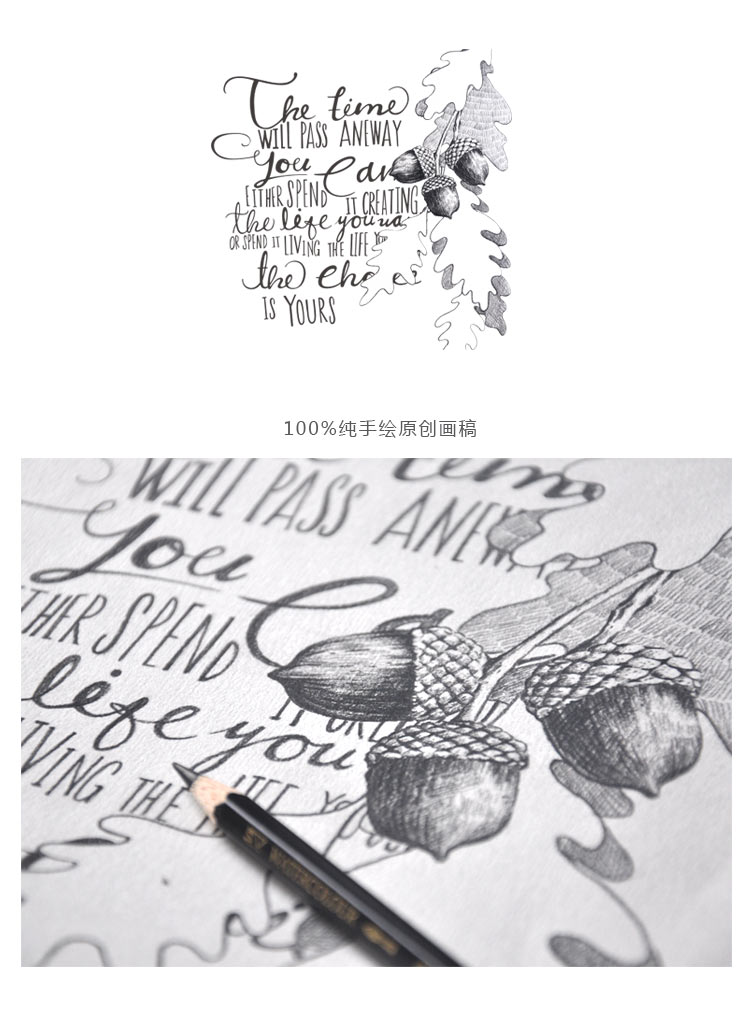 The time
WILL PASS ANEWAY
you Can
EITHER SPEND IT CREATING
the life you wa
OR SPEND IT LIVING THE LIFE
the cho
IS YOURS
100%纯手绘原创画稿
WILL PASS ANEW
you
THER SPEND
life you
LIVING THE LIFE